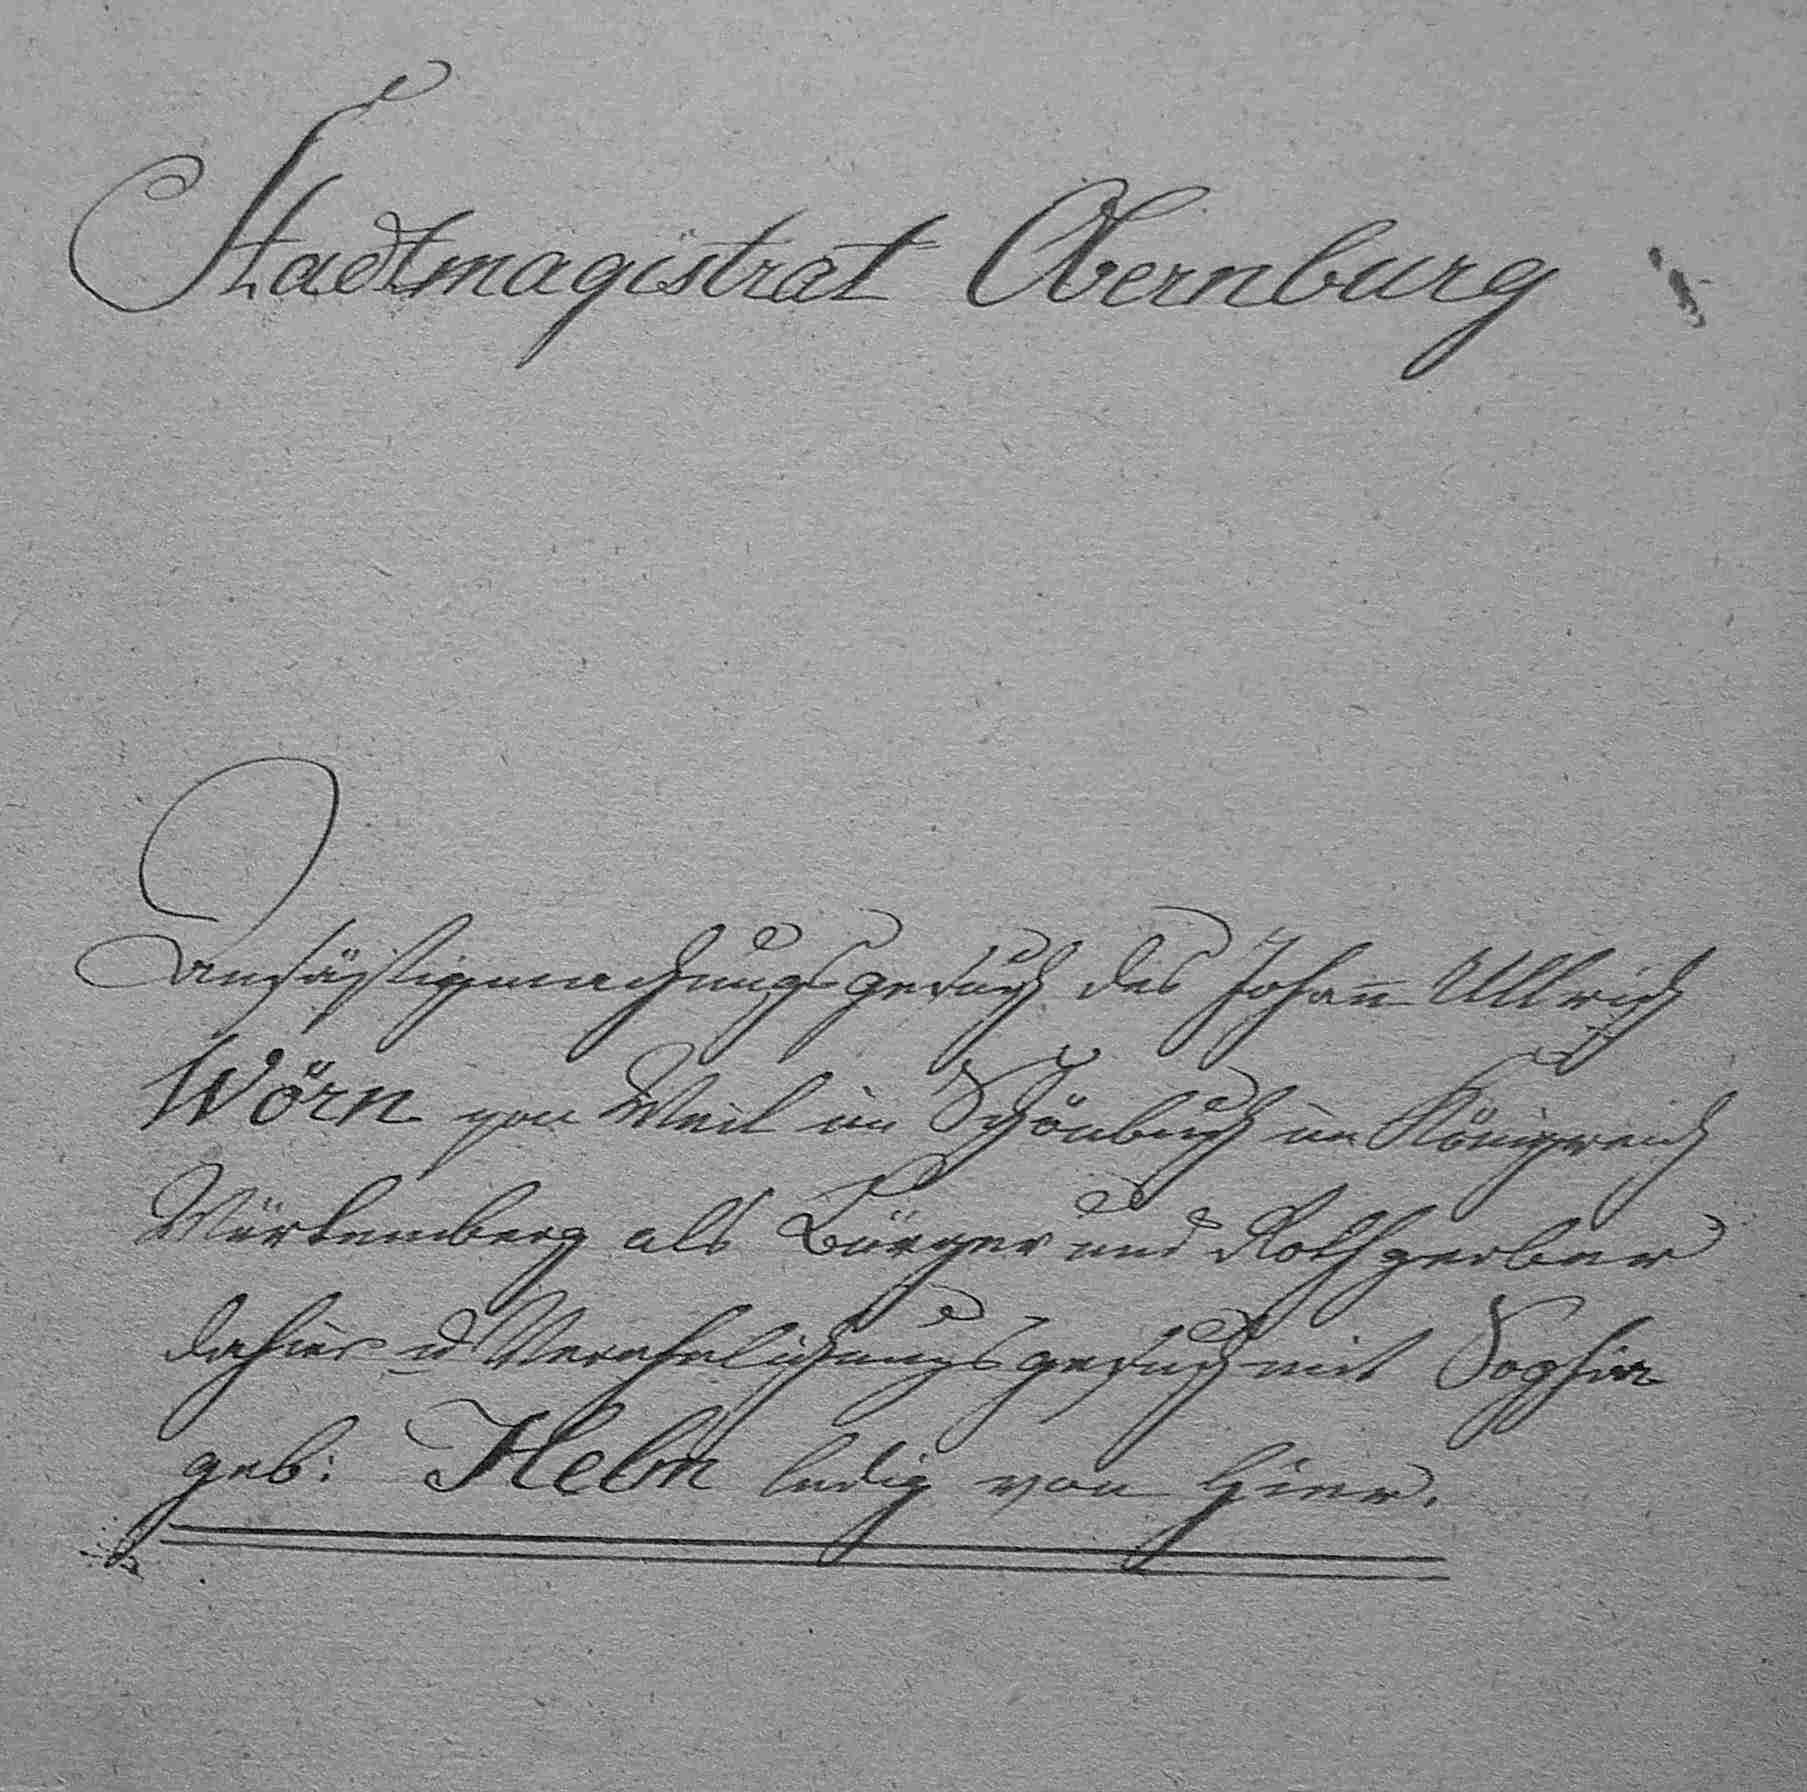 Stadtmagistrat Obernburg
Ansäßigmachungsgesuch des Johañ Ullrich
Wörn von Weil im Schönbuch im Königreich
Würtemberg als Bürger und Rothgerber
dahier u Verehelichungsgesuch mit Sophia
geb: Helm ledig von hier.